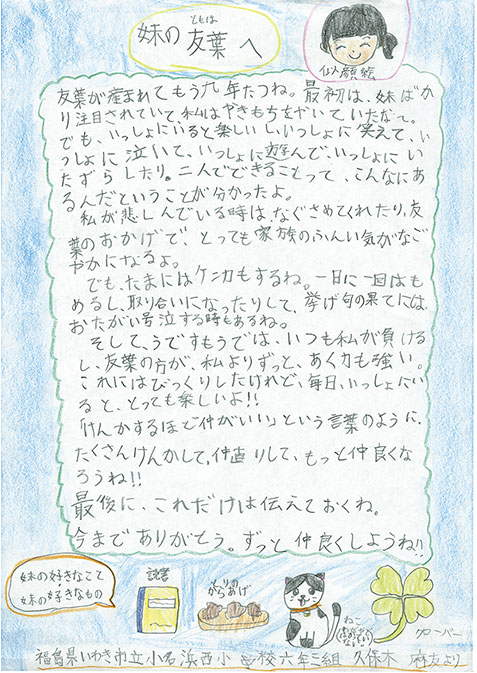 ともは
妹の友葉へ
似顔絵
友葉が産まれてもう九年たつね。最初は、妹ばか
り注目されていて、私はやきもちをやいていたなー。
でも、いっしょにいると楽しいし、いっしょに笑えて、い
っしょに泣いて、いっしょに遊んで、いっしょにい
たずらしたり。二人でできることって、こんなにあ
るんだということが分かったよ。
私が悲しんでいる時は、なぐさめてくれたり、友
葉のおかげで、とっても家族のふんい気がなご
やかになるよ。
でも、たまにはケンカもするね。一日に一回はも
めるし、取り合いになったりして、挙げ句の果てには、
おたがい号泣する時もあるね。
そして、うでずもうでは、いつも私が負ける
し、友葉の方が、私よりずっと、あく力も強い。
これにはびっくりしたけれど、毎日、いっしょにい
ると、とっても楽しいよ!!
「けんかするほど仲がいい」という言葉のように、
たくさんけんかして、仲直りして、もっと仲良くな
ろうね!!
最後に、これだけは伝えておくね。
今までありがとう。ずっと仲良くしようね!!
妹の好きなこと
妹の好きなもの
読書
からあげ
ねこ
クローバー
福島県いわき市立小名浜西小学校六年三組 久保木 麻友より